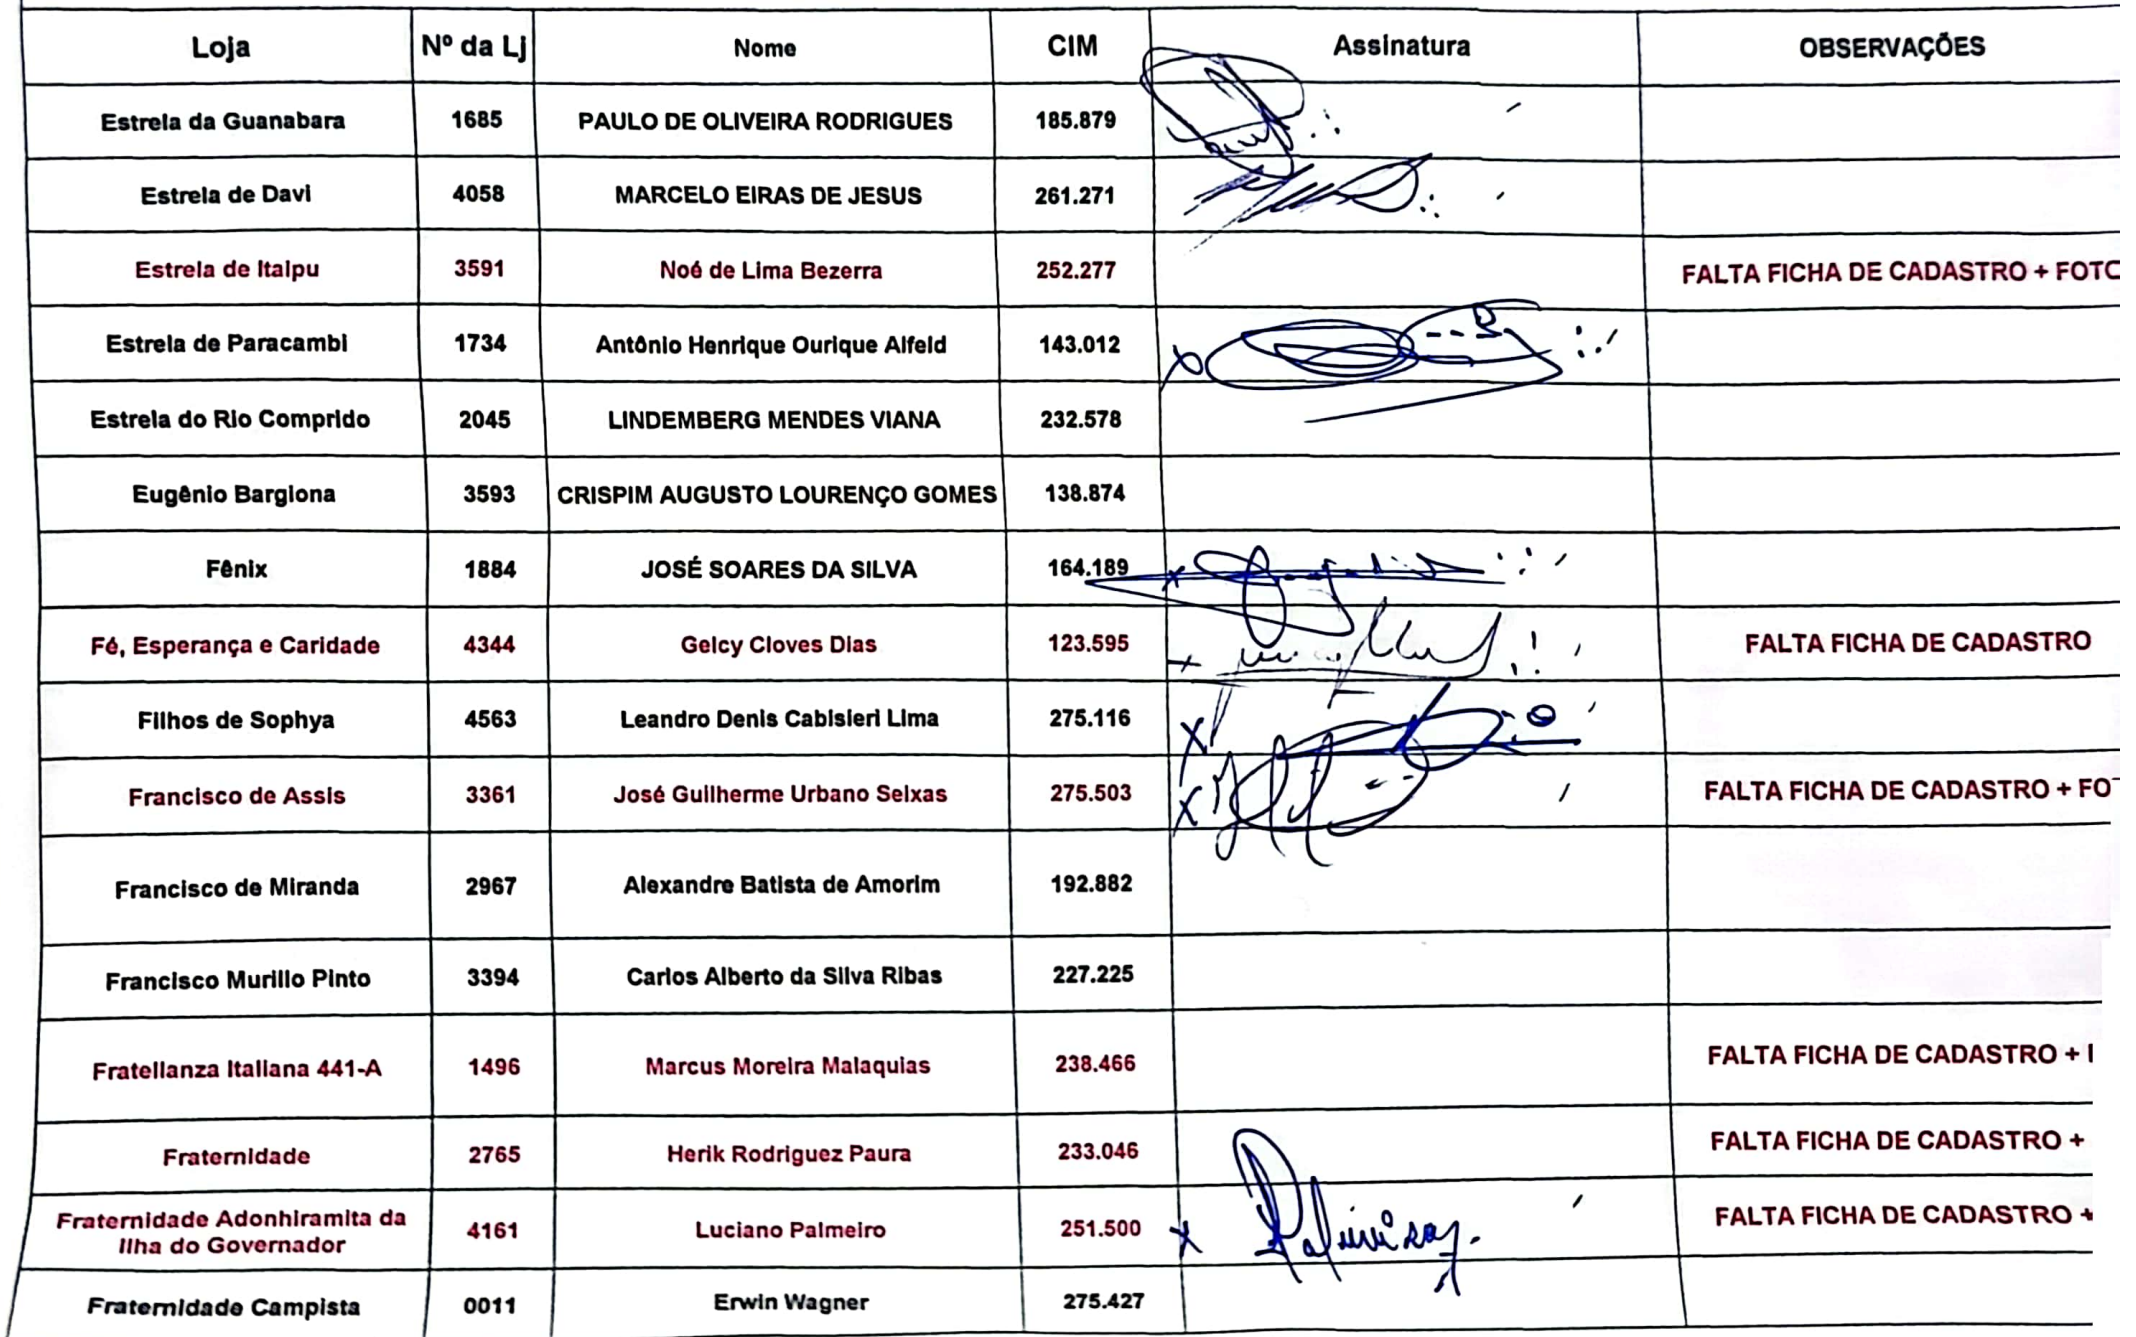 Loja Nº da Lj Nome CIM Assinatura OBSERVAÇÕES
Estrela da Guanabara 1685 PAULO DE OLIVEIRA RODRIGUES 185.879
Estrela de Davi 4058 MARCELO EIRAS DE JESUS 261.271
Estrela de Itaipu 3591 Noé de Lima Bezerra 252.277 FALTA FICHA DE CADASTRO + FOTO
Estrela de Paracambi 1734 Antônio Henrique Ourique Alfeld 143.012
Estrela do Rio Comprido 2045 LINDEMBERG MENDES VIANA 232.578
Eugênio Bargiona 3593 CRISPIM AUGUSTO LOURENÇO GOMES 138.874
Fênix 1884 JOSÉ SOARES DA SILVA 164.189 x
Fé, Esperança e Caridade 4344 Gelcy Cloves Dias 123.595 FALTA FICHA DE CADASTRO
Filhos de Sophya 4563 Leandro Denis Cabisieri Lima 275.116 x
Francisco de Assis 3361 José Guilherme Urbano Seixas 275.503 x FALTA FICHA DE CADASTRO + FO
Francisco de Miranda 2967 Alexandre Batista de Amorim 192.882
Francisco Murillo Pinto 3394 Carlos Alberto da Silva Ribas 227.225
Fratellanza Italiana 441-A 1496 Marcus Moreira Malaquias 238.466 FALTA FICHA DE CADASTRO +
Fraternidade 2765 Herik Rodriguez Paura 233.046 FALTA FICHA DE CADASTRO +
Fraternidade Adonhiramita da
Ilha do Governador 4161 Luciano Palmeiro 251.500 x FALTA FICHA DE CADASTRO +
Fraternidade Campista 0011 Erwin Wagner 275.427